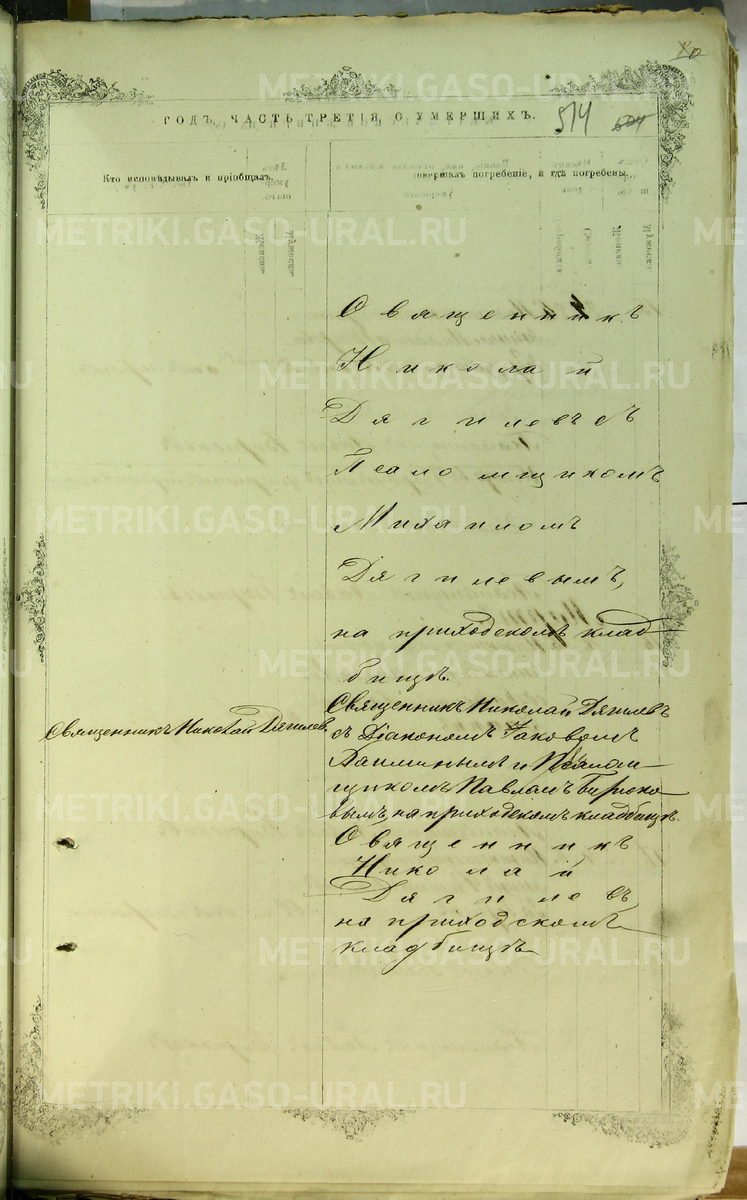 80
ГОДЪ, ЧАСТЬ ТРЕТІЯ, О УМЕРШИХЪ.
514
Кто исповѣдывалъ и пріобщалъ.
совершалъ погребеніе, и гдѣ погребены.
METRIKI.GASO-URAL.RU
Священникъ
Николай
Дягилевъ съ
Псаломщикомъ
Михаиломъ
Дягилевымъ,
на приходскомъ клад
бищѣ.
Священникъ Николай Дягилевъ
Священникъ Николай Дягилевъ
съ Діакономъ Іаковомъ
и Псалом
щикомъ Павломъ Бирюко
вымъ, на приходскомъ кладбищѣ.
Священникъ
Николай
Дягилевъ
на приходскомъ
кладбищѣ